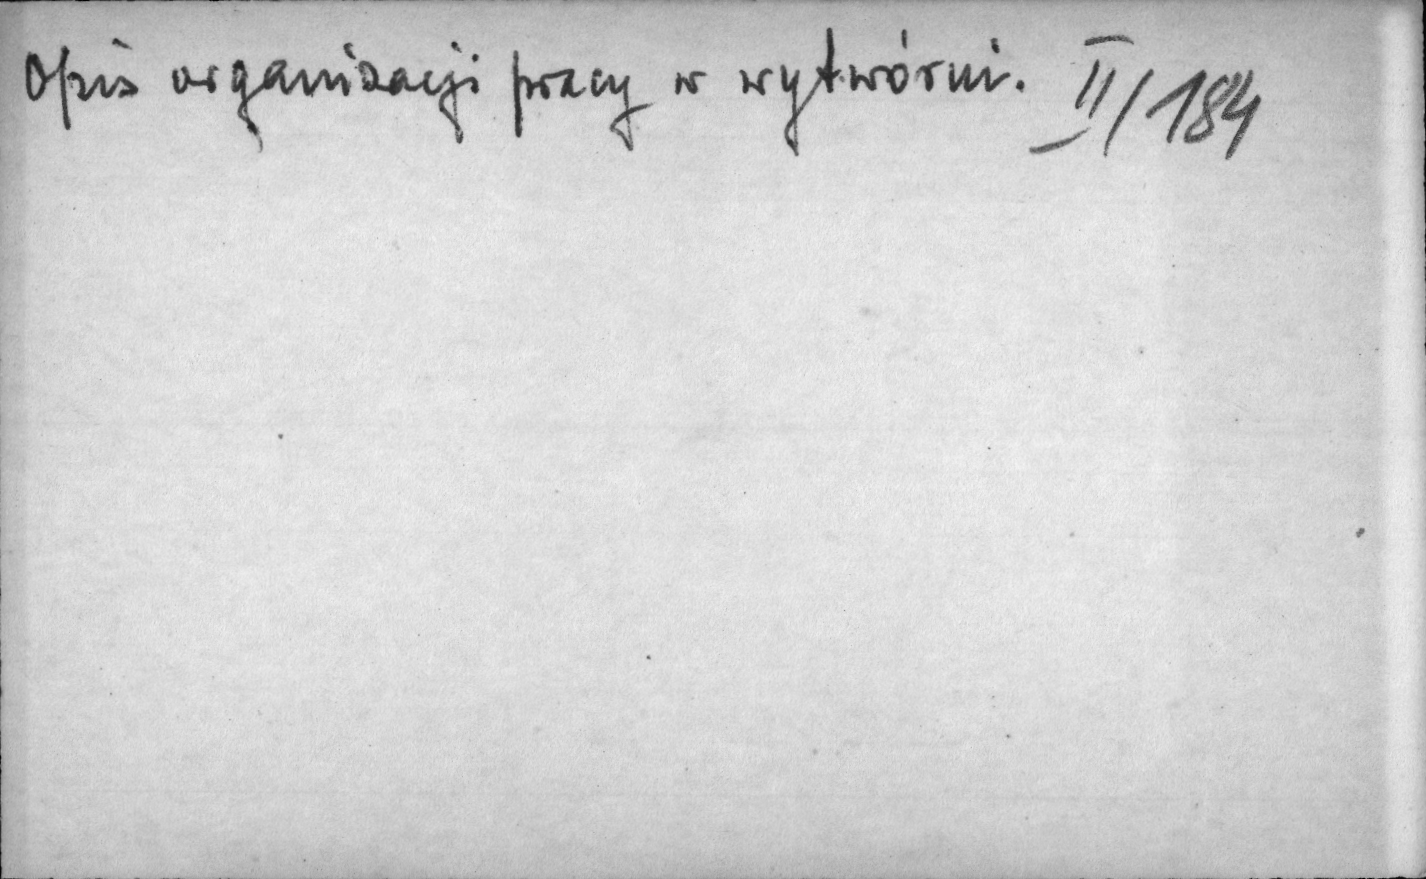 Opis organizacji pracy w wytwórni. II/184